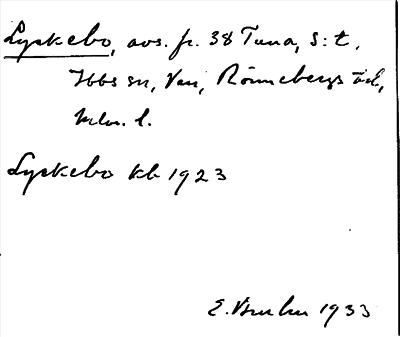 Lyckebo, avs. fr. 38 Tuna, S:t,
Ibbs sn, Ven, Rönnebergs äd,
Mlm. l.
Lyckebo kb 1923
E. 1933